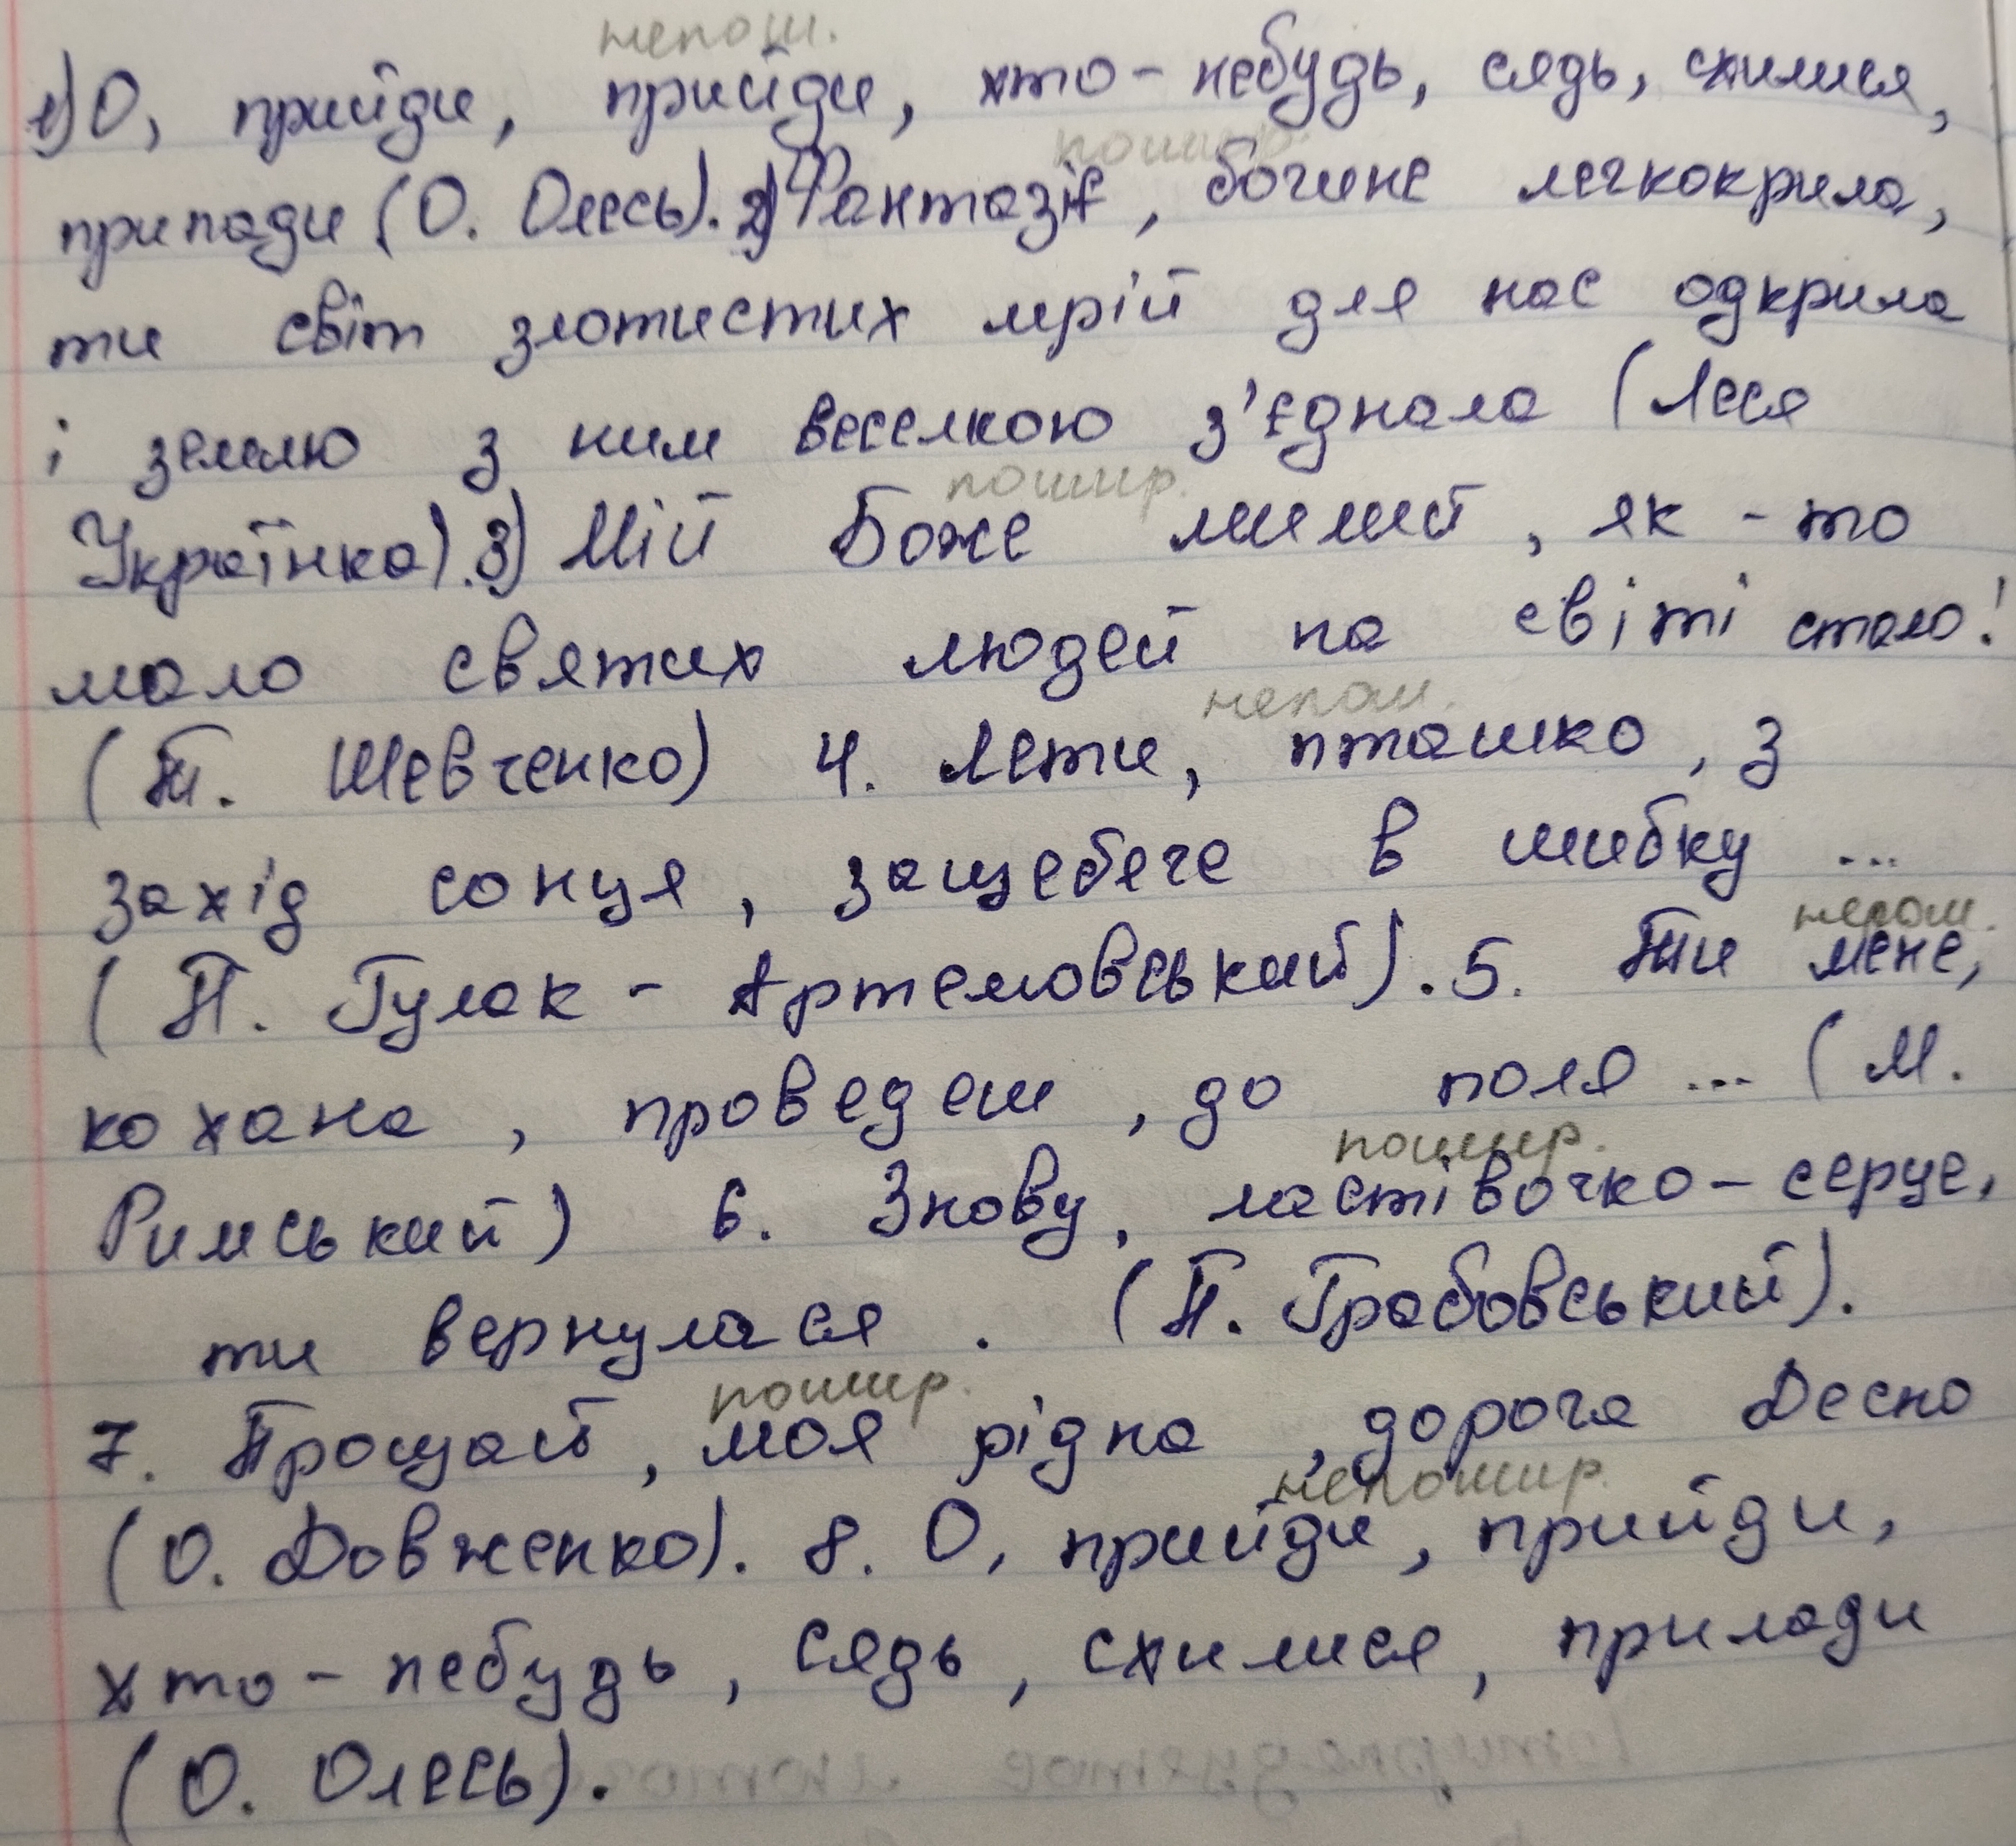 непош.
1) О, прийди, прийди, хто-небудь, сядь, схилися,
пошир.
припади (О. Олесь). 2) Фантазіє, богине легкокрила,
ти світ злотистих мрій для нас одкрила
і землю з ним веселкою з'єднала (Леся
пошир.
Українка). 3) Мій Боже милий, як-то
мало святих людей на світі стало!
непош.
(Т. Шевченко) 4. Лети, пташко, з
захід сонця, защебече в шибку ...
непош.
(П. Гулак-Артемовський). 5. Ти мене,
кохана, проведеш, до поля ... (М.
пошир.
Римський) 6. Знову, ластівочко-серце,
ти вернулася. (П. Грабовський).
пошир.
7. Прощай, моя рідна, дорога Десно
непошир.
(О. Довженко). 8. О, прийди, прийди,
хто-небудь, сядь, схилися, прилади
(О. Олесь).